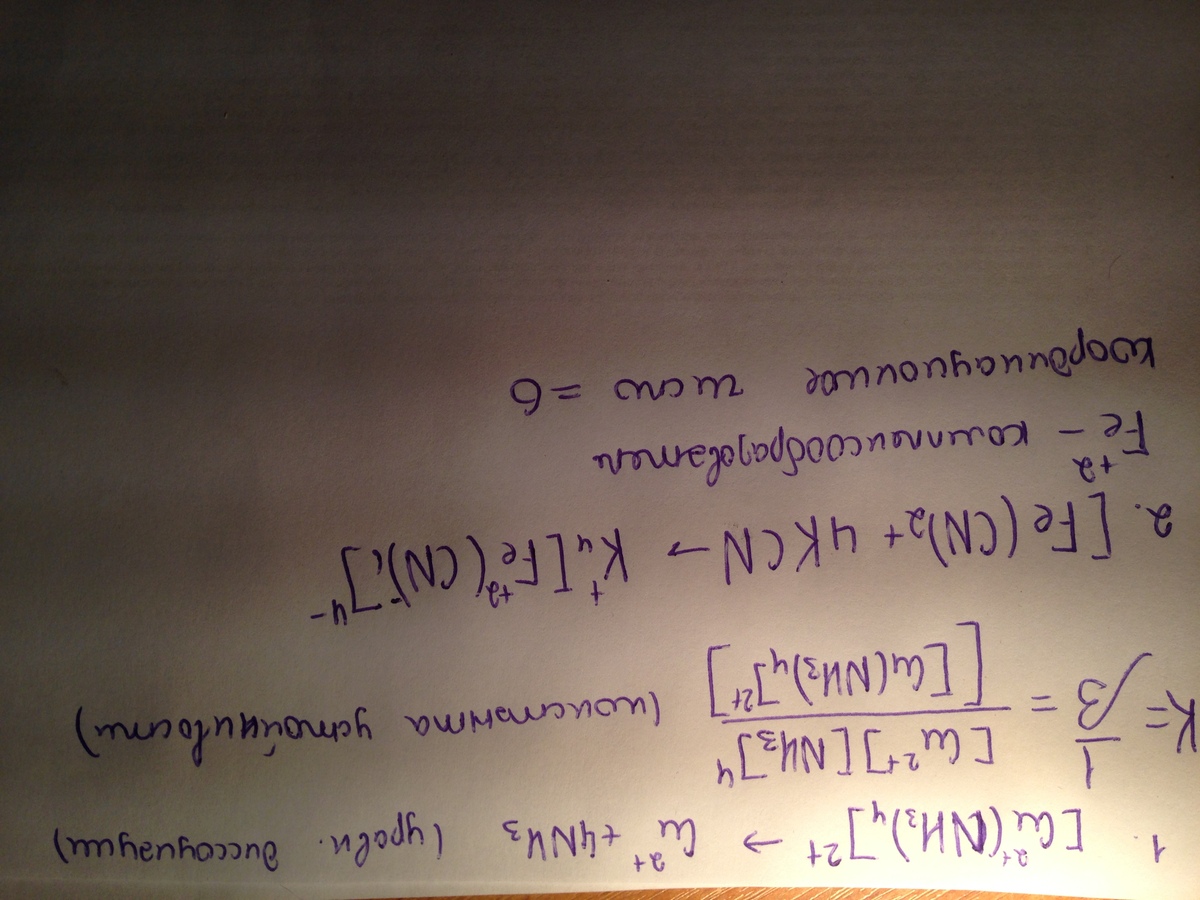 1. [Cu²⁺(NH₃)₄]²⁺ → Cu²⁺ + 4NH₃ (уравн. диссоциации)
K = 1/β = [Cu²⁺][NH₃]⁴ / [[Cu(NH₃)₄]²⁺] (константа устойчивости)
2. [Fe(CN)₂ + 4KCN → K₄⁺[Fe⁺²(CN)₆⁻]⁴⁻
Fe⁺² – комплексообразователь
координационное число = 6